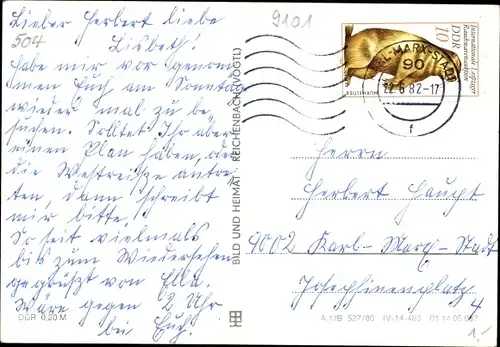 Lieber Herbert liebe
Lisbeth!
Habe mir vor genom-
men Euch am Sonntag
wieder mal zu be-
suchen. Solltet Ihr aber
einen Plan haben, oder
die Westreise antre-
ten, dann schreibt
mir bitte.
So seit vielmals
bis zum Wiedersehen
gegrüßt von Ella.
Wäre gegen 2 Uhr
bei Euch.
504
9101
DDR 0,20 M
BILD UND HEIMAT REICHENBACH (VOGTL)
Internationale Leipziger
Rauchwarenauktion
DDR
10
MURMELTIER
KARL-MARX-STADT
90
22.6.82-17
f
Herrn
Herbert Haupt
9002 Karl-Marx-Stadt
Josephinenplatz
4
A 1/B 527/80 IV-14-483 01 14 05 087
1,-